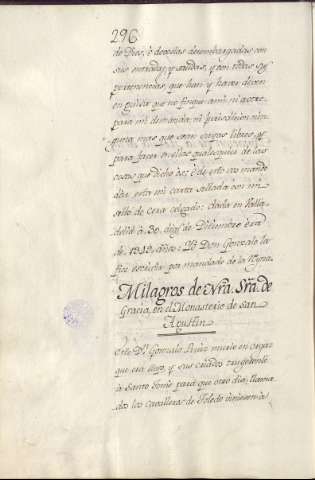 296
de Dios, è devoias desembargadas con
sus entradas, y salidas, y con todas sus
pertenencias, que han y haver deven
en guisa que no finque a mi ni a otro
para mi demanda ni
mas que sean vuestras libres, y
para facer en ellas qualesquier de las
cosas que dicho è; è de esto vos mandé
dar esta mi carta sellada con mi
sello de cera colgado: dada en Valla-
dolid à 30. dias de Diciembre era
de 1313. años: Yo Don Gonzalo la
fice escribir por mandado de la Reyna.
Milagros de Nra. Sra. de
Gracia, en el Monasterio de San
Agustin
Este Dn. Gonzalo Ruiz murio en Orgaz
que era suyo, y sus criados trugeronle
à Santo Tomè para que otro dia, llama-
dos los cavalleros de Toledo viniesen à